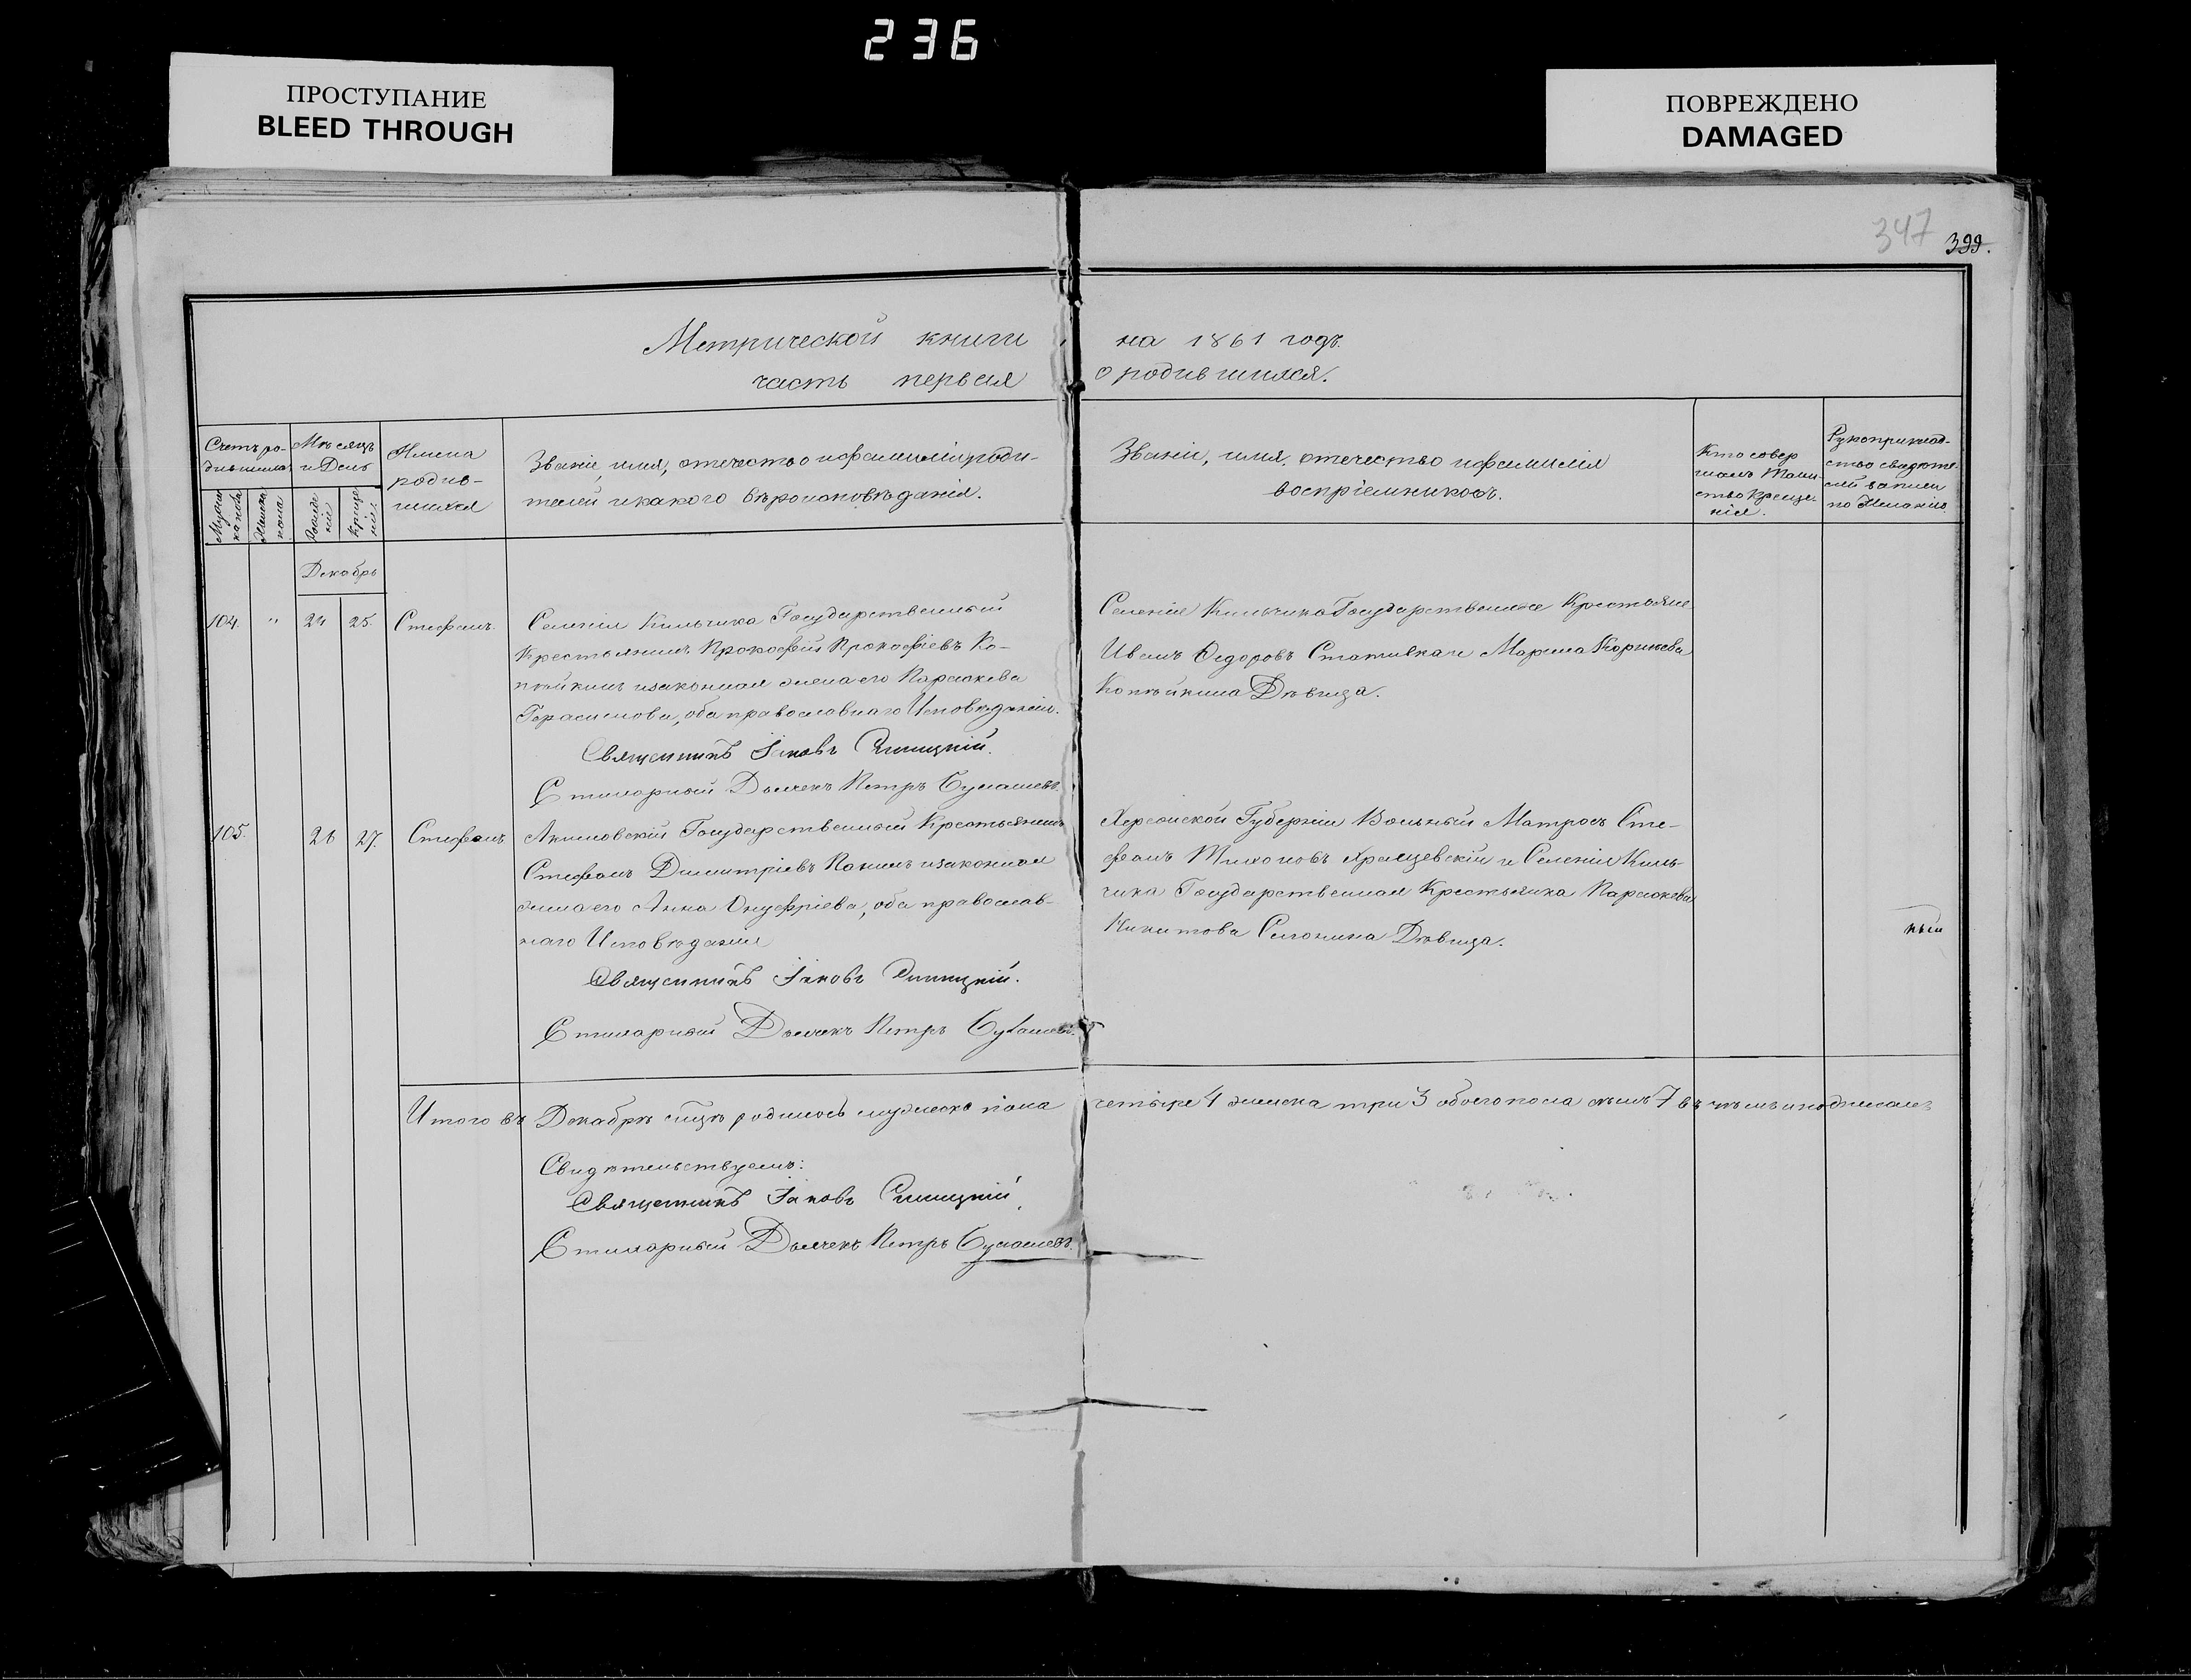 236
ПРОСТУПАНИЕ
BLEED THROUGH
ПОВРЕЖДЕНО
DAMAGED
347
399.
Метрической книги на 1861 годъ.
часть первая о родившихся.
Счетъ ро-
дившихся
Мужеска пола
Женска пола
Мѣсяцъ
и День
Рожде
нія
Креще
нія
Имена
родив-
шихся
Званіе, имя, отечество и фамилія роди-
телей и какого вѣроисповѣданія.
Званіе, имя, отечество и фамилія
воспріемниковъ.
Кто совер
шалъ Таин
ство Креще-
нія.
Рукоприклад-
ство свидѣте-
лей записи
по желанію
Декабрь
104. " 24 25. Стефанъ.
Селенія Кильчика Государственный
Крестьянинъ Прокофій Прокофіевъ Ко-
пѣйкинъ и законная жена его Параскева
Герасимова, оба православнаго Исповѣданія.
Священникъ Іаковъ
Стихарный Дьячекъ Петръ
Селенія Кильчика Государственные Крестьяне
Иванъ Ѳедоровъ и Марина Корнѣева
Копѣйкина Дѣвица.
105. 26 27. Стефанъ
Акимовскій Государственный Крестьянинъ
Стефанъ Димитріевъ Панинъ и законная
жена его Анна Онуфріева, оба православ-
наго Исповѣданія
Священникъ Іаковъ
Стихарный Дьячекъ Петръ
Херсонской Губерніи Вольный Матросъ Сте-
фанъ Тихоновъ и Селенія Киль-
чика Государственная Крестьянка Параскева
Никитова Дѣвица.
ный
Итого въ Декабрѣ мцѣ родилось мужеска пола четыре 4 женска три 3 обоего пола 7
Свидѣтельствуемъ:
Священникъ Іаковъ
Стихарный Дьячекъ Петръ